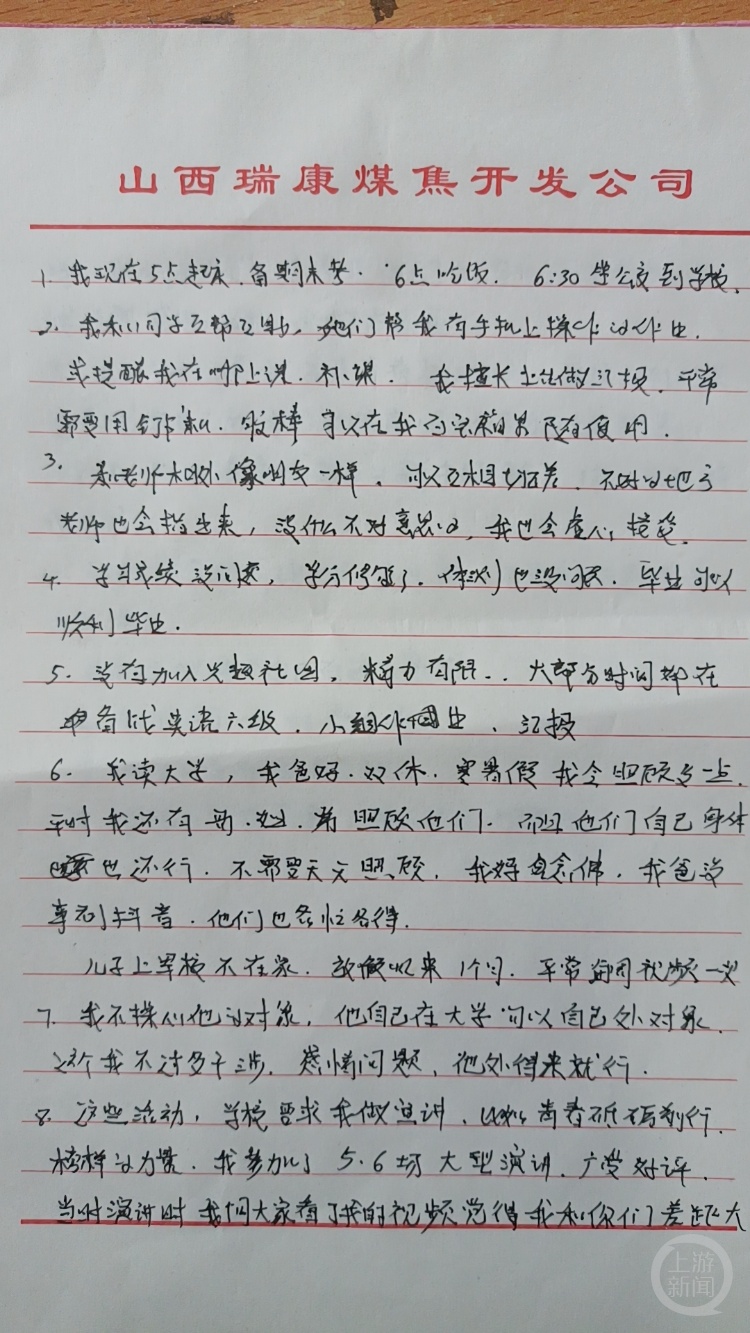 山西瑞康煤焦开发公司
1. 我现在5点起床.备期末考. 6点吃饭. 6:30坐公交到学校.
2. 我和同学互帮互助,他们帮我有手机上操作的作业.
或提醒我在哪上课.补课. 我擅长上台做汇报.平常
需要用
3. 和老师相处像朋友一样.可以互相 不对的地方
老师也会指出来,没什么不好意思的,我也会虚心接受.
4. 学习成绩没问题,学分修够了.体测也没问题.毕业可以
顺利毕业.
5. 没有加入兴趣社团,精力有限..大部分时间都在
准备 英语六级.小组作业、汇报
6. 我读大学,我爸妈.双休.寒暑假我会照顾多一点.
平时我还有 照顾他们.而且他们自己身体
也还行.不需要天天照顾.我妈念佛.我爸没
事刷抖音.他们也各忙各得.
儿子上军校不在家.放假回来1个月.平常通过视频
7. 我不操心他的对象,他自己在大学可以自己处对象.
这个我不过多干涉.感情问题,他处得来就行.
8. 这些活动,学校要求我做演讲. 青春砥砺前行.
榜样的力量.我参加了5.6场大型演讲.广受好评.
当时演讲时我问大家看了我的视频觉得我和你们差距大
上游新闻